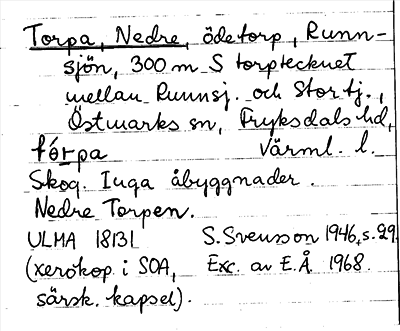 Torpa, Nedre, ödetorp, Runn-
sjön, 300 m S torptecknet
mellan Runnsj. och Stortj.,
Östmarks sn, Fryksdals hd,
tórpa Värml. l.
Skog. Inga åbyggnader.
Nedre Torpen.
ULMA 18131 S. Svensson 1946, s. 29
(xerokop. i SOA, Exc. av E.Å. 1968.
särsk. kapsel).